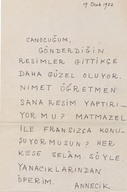 19 Ocak 1922
CANOCUĞUM,
GÖNDERDİĞİN
RESİMLER GİTTİKÇE
DAHA GÜZEL OLUYOR.
NİMET ÖĞRETMEN
SANA RESİM YAPTIRI-
YOR MU? MATMAZEL
İLE FRANSIZCA KONU-
ŞUYORMUSUN? HER-
KESE SELÂM SÖYLE
YANACIKLARINDAN
ÖPERİM.
ANNECİK